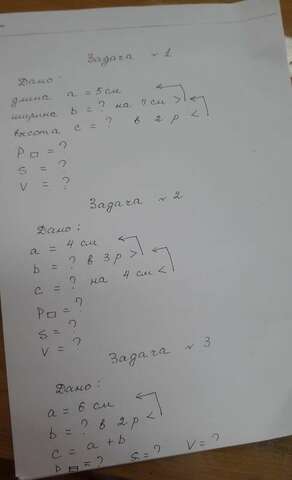 Задача № 1
Дано:
длина a = 5 см
ширина b = ? на 7 см >
высота c = ? в 2 р <
P□ = ?
S = ?
V = ?
Задача № 2
Дано:
a = 4 см
b = ? в 3 р >
c = ? на 4 см <
P□ = ?
S = ?
V = ?
Задача № 3
Дано:
a = 6 см
b = ? в 2 р <
c = a + b
P□ = ? S = ? V = ?